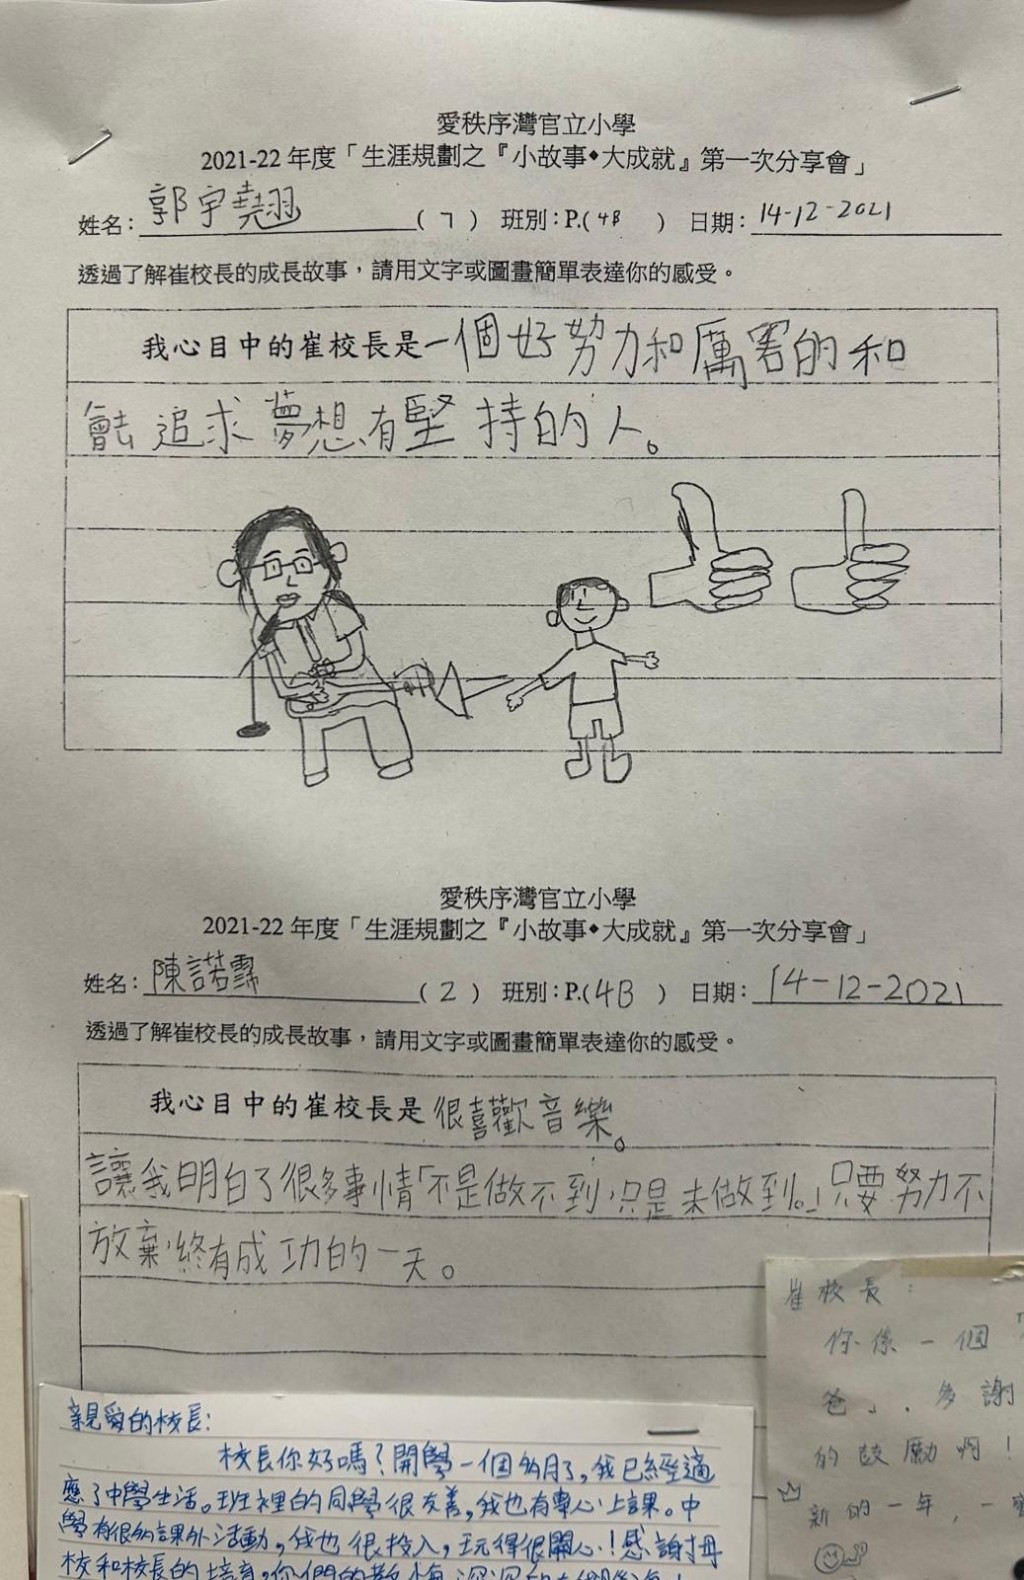 愛秩序灣官立小學
2021-22 年度「生涯規劃之『小故事◆大成就』第一次分享會」
姓名：郭宇堯翃 （ 7 ） 班別：P.( 4B ） 日期：14-12-2021
透過了解崔校長的成長故事，請用文字或圖畫簡單表達你的感受。
我心目中的崔校長是一個好努力和厲害的和
會去追求夢想有堅持的人。
愛秩序灣官立小學
2021-22 年度「生涯規劃之『小故事◆大成就』第一次分享會」
姓名：陳諾霈 （ 2 ） 班別：P.( 4B ） 日期：14-12-2021
透過了解崔校長的成長故事，請用文字或圖畫簡單表達你的感受。
我心目中的崔校長是很喜歡音樂。
讓我明白了很多事情「不是做不到，只是未做到。」只要努力不
放棄，終有成功的一天。
崔校長：
你係一個
爸」. 多謝
的鼓勵啊！
新的一年，一
親愛的校長：
校長你好嗎？開學一個多月了，我已經適
應了中學生活。班裡的同學很友善，我也有專心上課。中
學有很多課外活動，我也很投入，玩得很開心！感謝母
校和校長的培育，你們的教悔深深